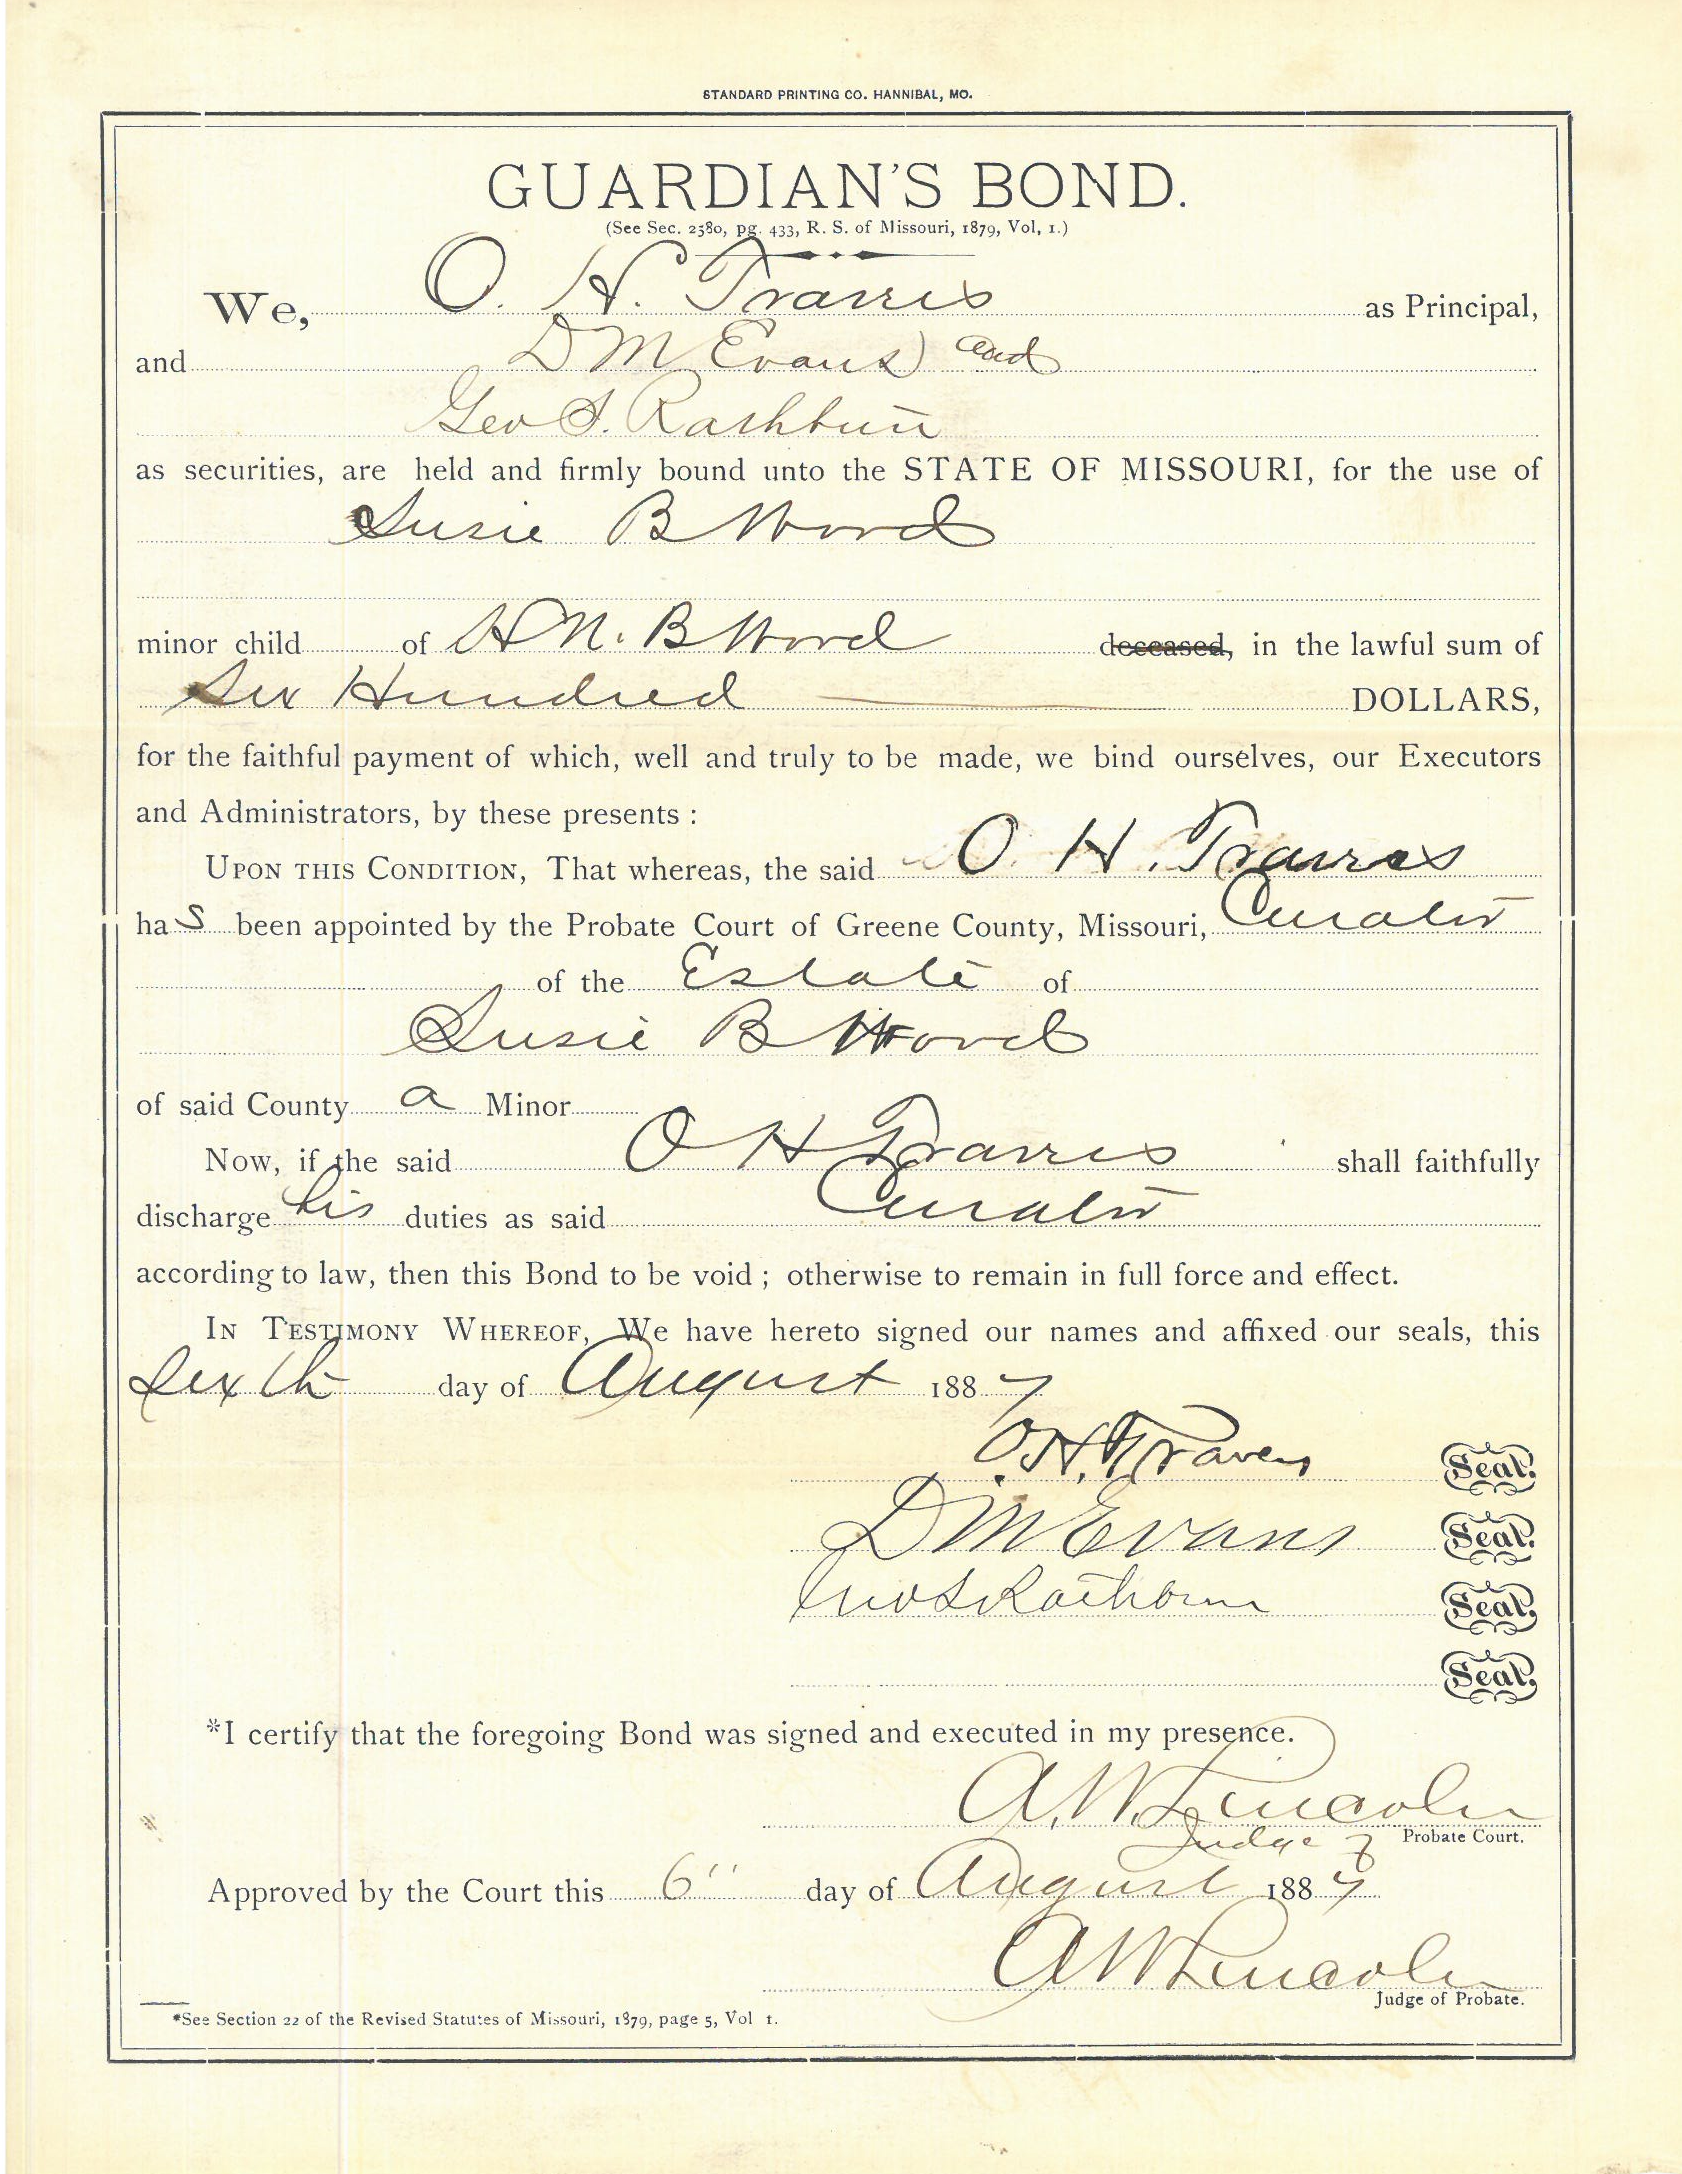 STANDARD PRINTING CO. HANNIBAL, MO.
GUARDIAN'S BOND.
(See Sec. 2580, pg. 433, R. S. of Missouri, 1879, Vol, 1.)
We, O. H. Travers as Principal,
and D M Evans and
Geo S. Rathbun
as securities, are held and firmly bound unto the STATE OF MISSOURI, for the use of
Susie B Word
minor child of H N. B Word deceased, in the lawful sum of
Six Hundred DOLLARS,
for the faithful payment of which, well and truly to be made, we bind ourselves, our Executors
and Administrators, by these presents :
UPON THIS CONDITION, That whereas, the said O H. Travers
has been appointed by the Probate Court of Greene County, Missouri, Curator
of the Estate of
Susie B Word
of said County a Minor
Now, if the said O H Travers shall faithfully
discharge his duties as said Curator
according to law, then this Bond to be void ; otherwise to remain in full force and effect.
IN TESTIMONY WHEREOF, We have hereto signed our names and affixed our seals, this
Sixth day of August 1887
O.H. Travers Seal.
D M Evans Seal.
Geo S Rathbun Seal.
Seal.
*I certify that the foregoing Bond was signed and executed in my presence.
A. W. Lincoln
Judge of Probate Court.
Approved by the Court this 6" day of August 1887
A W Lincoln
Judge of Probate.
*See Section 22 of the Revised Statutes of Missouri, 1879, page 5, Vol 1.